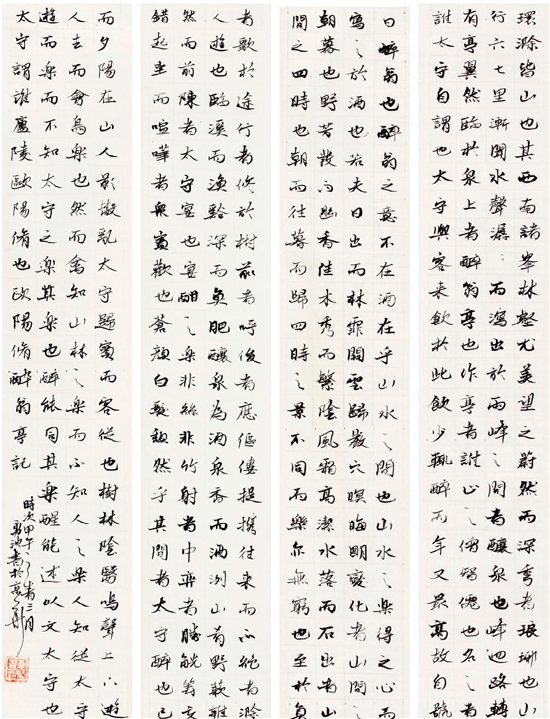 環滁皆山也其西南諸峯林壑尤美望之蔚然而深秀者琅琊也山
行六七里漸聞水聲潺潺而瀉出於兩峰之間者釀泉也峰迴路轉
有亭翼然臨於泉上者醉翁亭也作亭者誰山之僧智僊也名之
誰太守自謂也太守與客來飲於此飲少輒醉而年又最高故自號
曰醉翁也醉翁之意不在酒在乎山水之間也山水之樂得之心而
寓之於酒也若夫日出而林霏開雲歸巖穴暝晦明變化者山間
朝暮也野芳發而幽香佳木秀而繁陰風霜高潔水落而石出者山
間之四時也朝而往暮而歸四時之景不同而樂亦無窮也至於負
者歌於途行者休於樹前者呼後者應傴僂提攜往來而不絕者滁
人遊也臨溪而漁谿深而魚肥釀泉為酒泉香而酒洌山肴野蔌雜
然而前陳者太守宴也宴酣之樂非絲非竹射者中弈者勝觥籌交
錯起坐而喧嘩者衆賓歡也蒼顏白髮頹然乎其間者太守醉也已
而夕陽在山人影散亂太守歸賓而客從也樹林陰翳鳴聲上下遊
人去而禽鳥樂也然而禽知山林之樂而不知人之樂人知從太守
遊而樂而不知太守之樂其樂也醉能同其樂醒能述以文太守也
太守謂誰廬陵歐陽脩也歐陽脩醉翁亭記
時次甲午三月